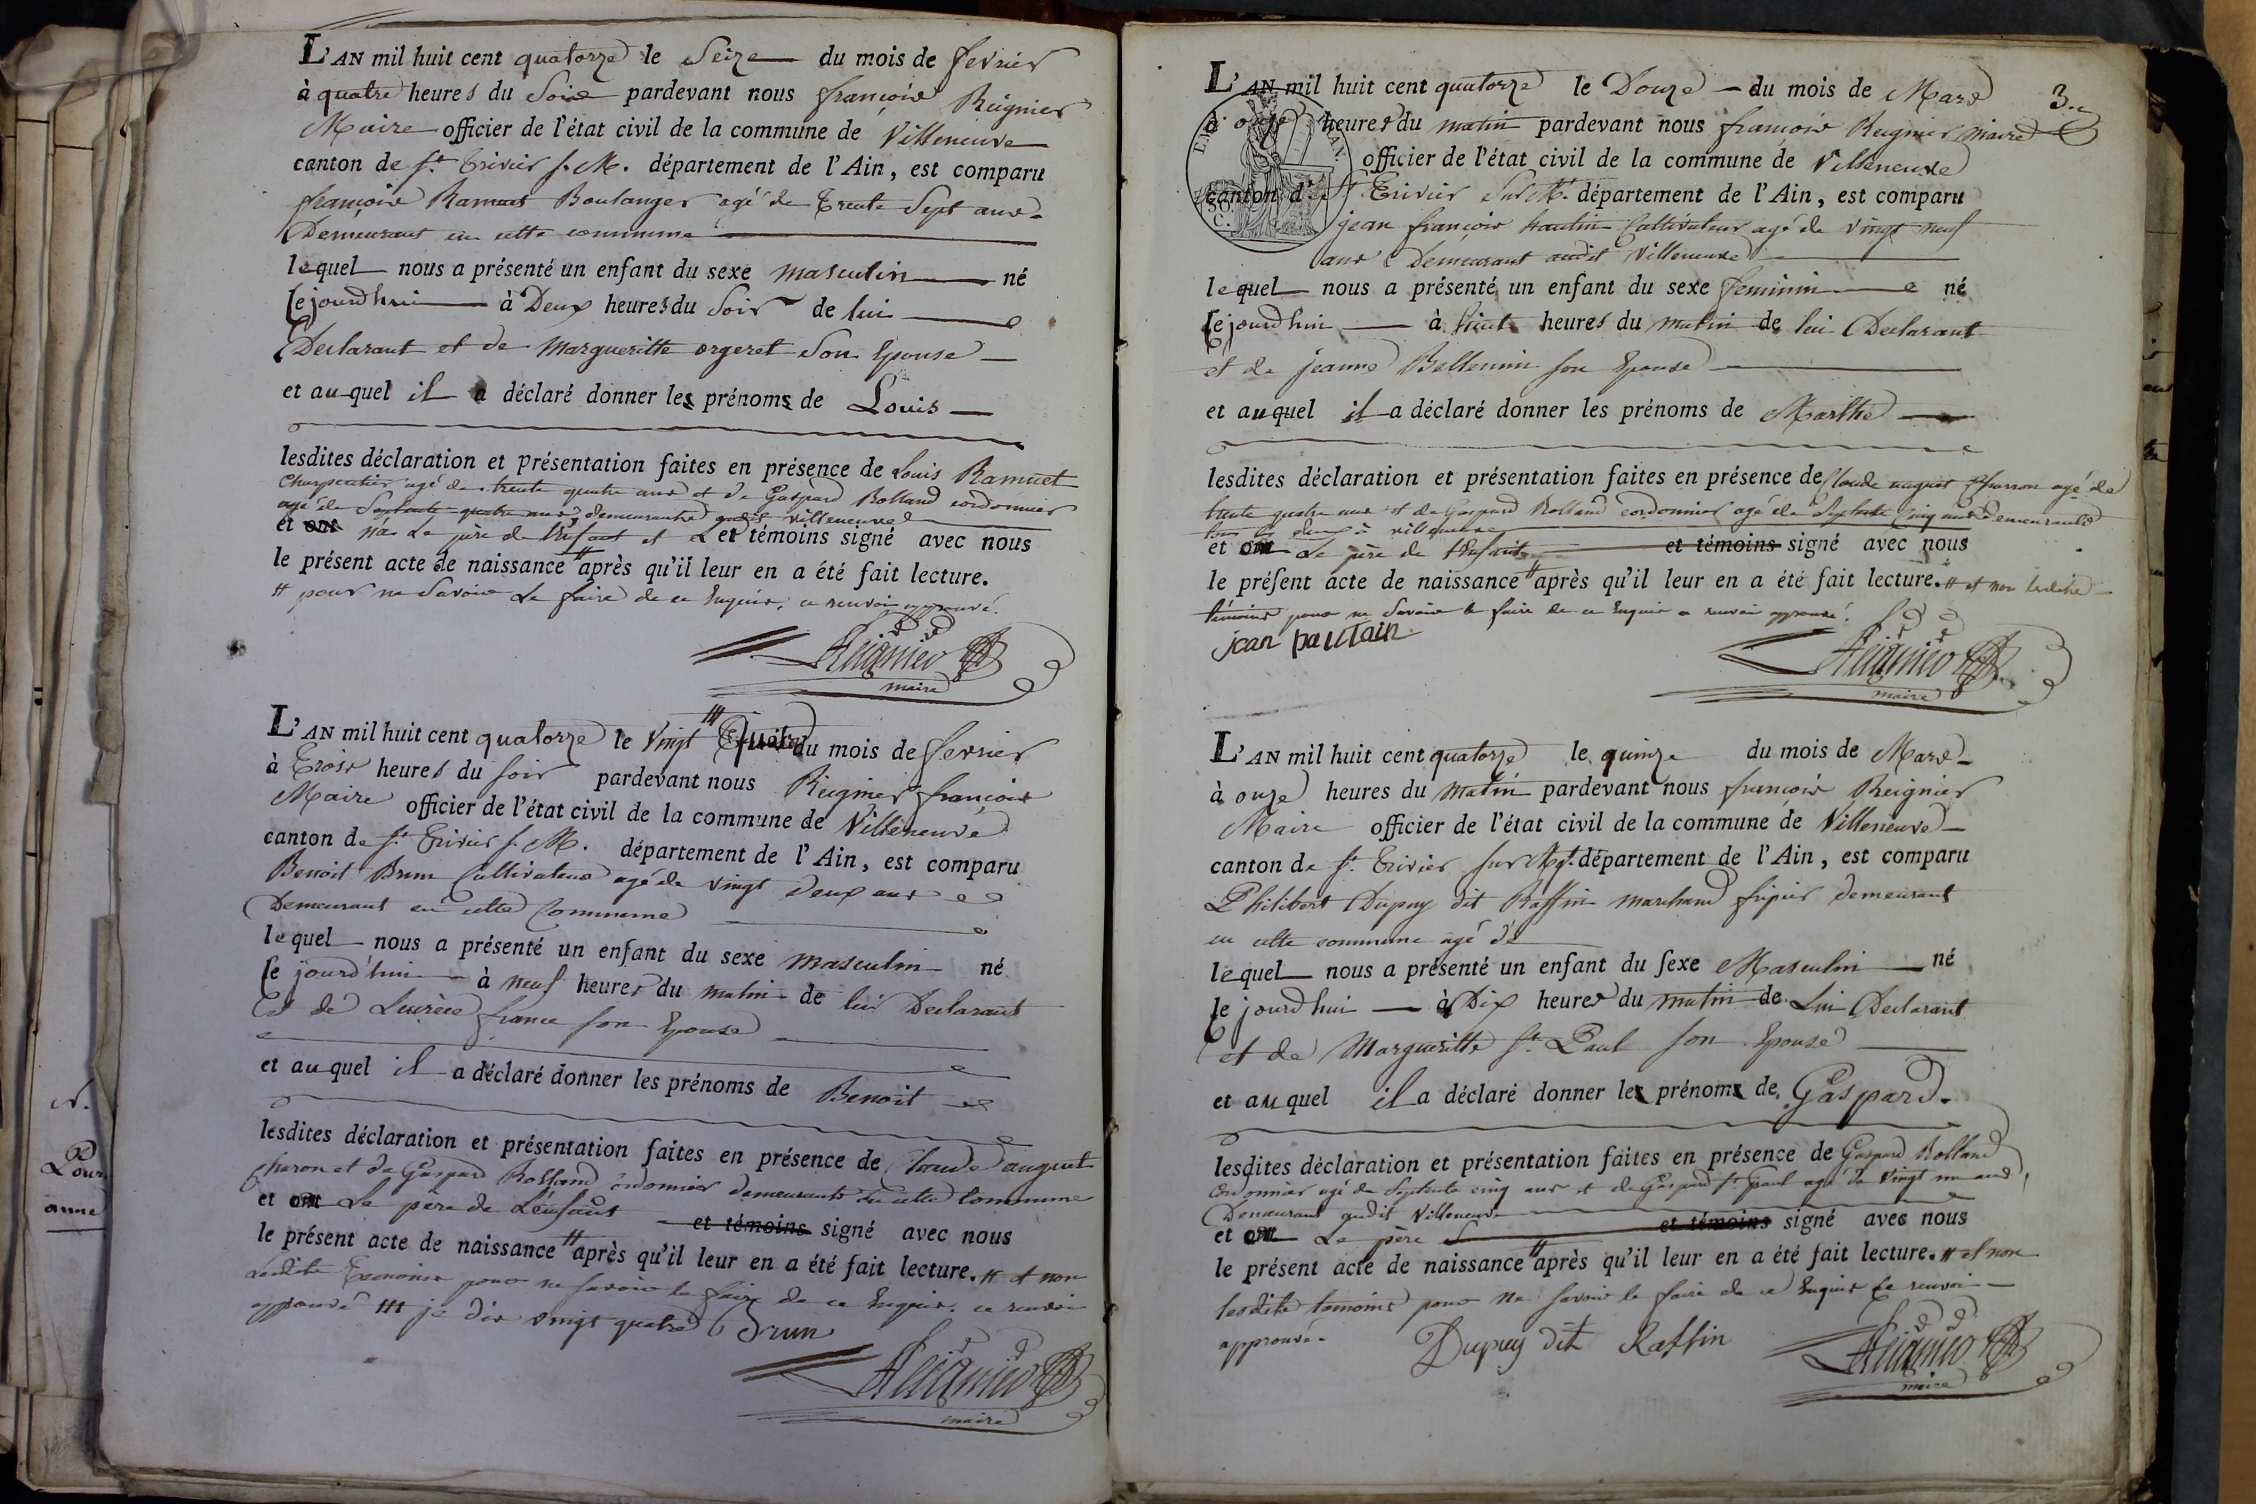 L'AN mil huit cent quatorze le Seize du mois de fevrier
à quatre heures du Soir pardevant nous françois Reignier
Maire officier de l'état civil de la commune de Villeneuve
canton de St. Trivier s. M. département de l'Ain, est comparu
françois Ramuet Boulanger agé de Trente Sept ans
Demeurant en cette commune
lequel nous a présenté un enfant du sexe masculin né
Cejourd'hui à Deux heures du Soir de lui
Declarant et de Margueritte orgeret Son Epouse
et auquel il a déclaré donner les prénoms de Louis
lesdites déclaration et présentation faites en présence de Louis Ramuet
Charpentier agé de trente quatre ans et de Gaspard Rolland cordonnier
agé de Septante quatre ans, demeurants audit Villeneuve
et ont n'a Le père de l'Enfant et Les témoins signé avec nous
le présent acte de naissance # après qu'il leur en a été fait lecture.
# pour ne Savoir Le faire de ce Enquis, ce renvoi approuvé.
Reignier
maire
L'AN mil huit cent quatorze le Vingt Quatre du mois de fevrier
à Trois heures du soir pardevant nous Reignier françois
Maire officier de l'état civil de la commune de Villeneuve
canton de St. Trivier s. M. département de l'Ain, est comparu
Benoit Brun Cultivateur agé de vingt Deux ans
Demeurant en cette Commune
lequel nous a présenté un enfant du sexe masculin né
Ce jourd'hui à neuf heures du matin de lui Declarant
Et de Lucrèce france son Epouse
et auquel il a déclaré donner les prénoms de Benoit
lesdites déclaration et présentation faites en présence de Claude auguet
charon et de Gaspard Rolland cordonnier demeurants en cette Commune
et ont Le père de L'enfant et témoins signé avec nous
le présent acte de naissance # après qu'il leur en a été fait lecture. # et non
Lesdits Temoins pour ne savoir le faire de ce Enquis. ce renvoi
approuvé ### je dis vingt quatre Brun
Reignier
maire
3.e
L'AN mil huit cent quatorze le Douze du mois de Mars
à onze heures du matin pardevant nous françois Reignier maire
officier de l'état civil de la commune de Villeneuve
canton de St Trivier Sur M. département de l'Ain, est comparu
jean françois Paulin Cultivateur agé de vingt neuf
ans Demeurant audit Villeneuve
lequel nous a présenté un enfant du sexe feminin né
Cejourd'hui à huit heures du matin de lui Declarant
et de jeanne Bellemin son Epouse
et auquel il a déclaré donner les prénoms de Marthe
lesdites déclaration et présentation faites en présence de Claude auguet Charron agé de
trente quatre ans et de Gaspard Rolland cordonnier agé de Septante Cinq ans Demeurants
tous les deux à villeneuve
et ont Le père de l'Enfant et témoins signé avec nous
le présent acte de naissance # après qu'il leur en a été fait lecture. # et non lesdits
témoins pour ne Savoir le faire de ce Enquis ce renvoi approuvé.
jean paullain
Reignier
maire
L'AN mil huit cent quatorze le quinze du mois de Mars
à onze heures du matin pardevant nous françois Reignier
Maire officier de l'état civil de la commune de Villeneuve
canton de St. Trivier sur Mgt. département de l'Ain, est comparu
Philibert Dupuy dit Raffin marchand fripier demeurant
en cette commune agé de
lequel nous a présenté un enfant du sexe Masculin né
Ce jourd'hui à Dix heures du matin de Lui Declarant
et de Margueritte St. Paul son Epouse
et auquel il a déclaré donner les prénoms de Gaspard.
lesdites déclaration et présentation faites en présence de Gaspard Rolland
Cordonnier agé de Septante cinq ans et de Gaspard St. Paul agé de Vingt un ans,
Demeurant audit Villeneuve
et ont Le père et témoins signé avec nous
le présent acte de naissance # après qu'il leur en a été fait lecture. # et non
lesdits temoins pour Ne savoir le faire de ce Enquis Ce renvoi
approuvé.
Dupuy dit Raffin
Reignier
maire